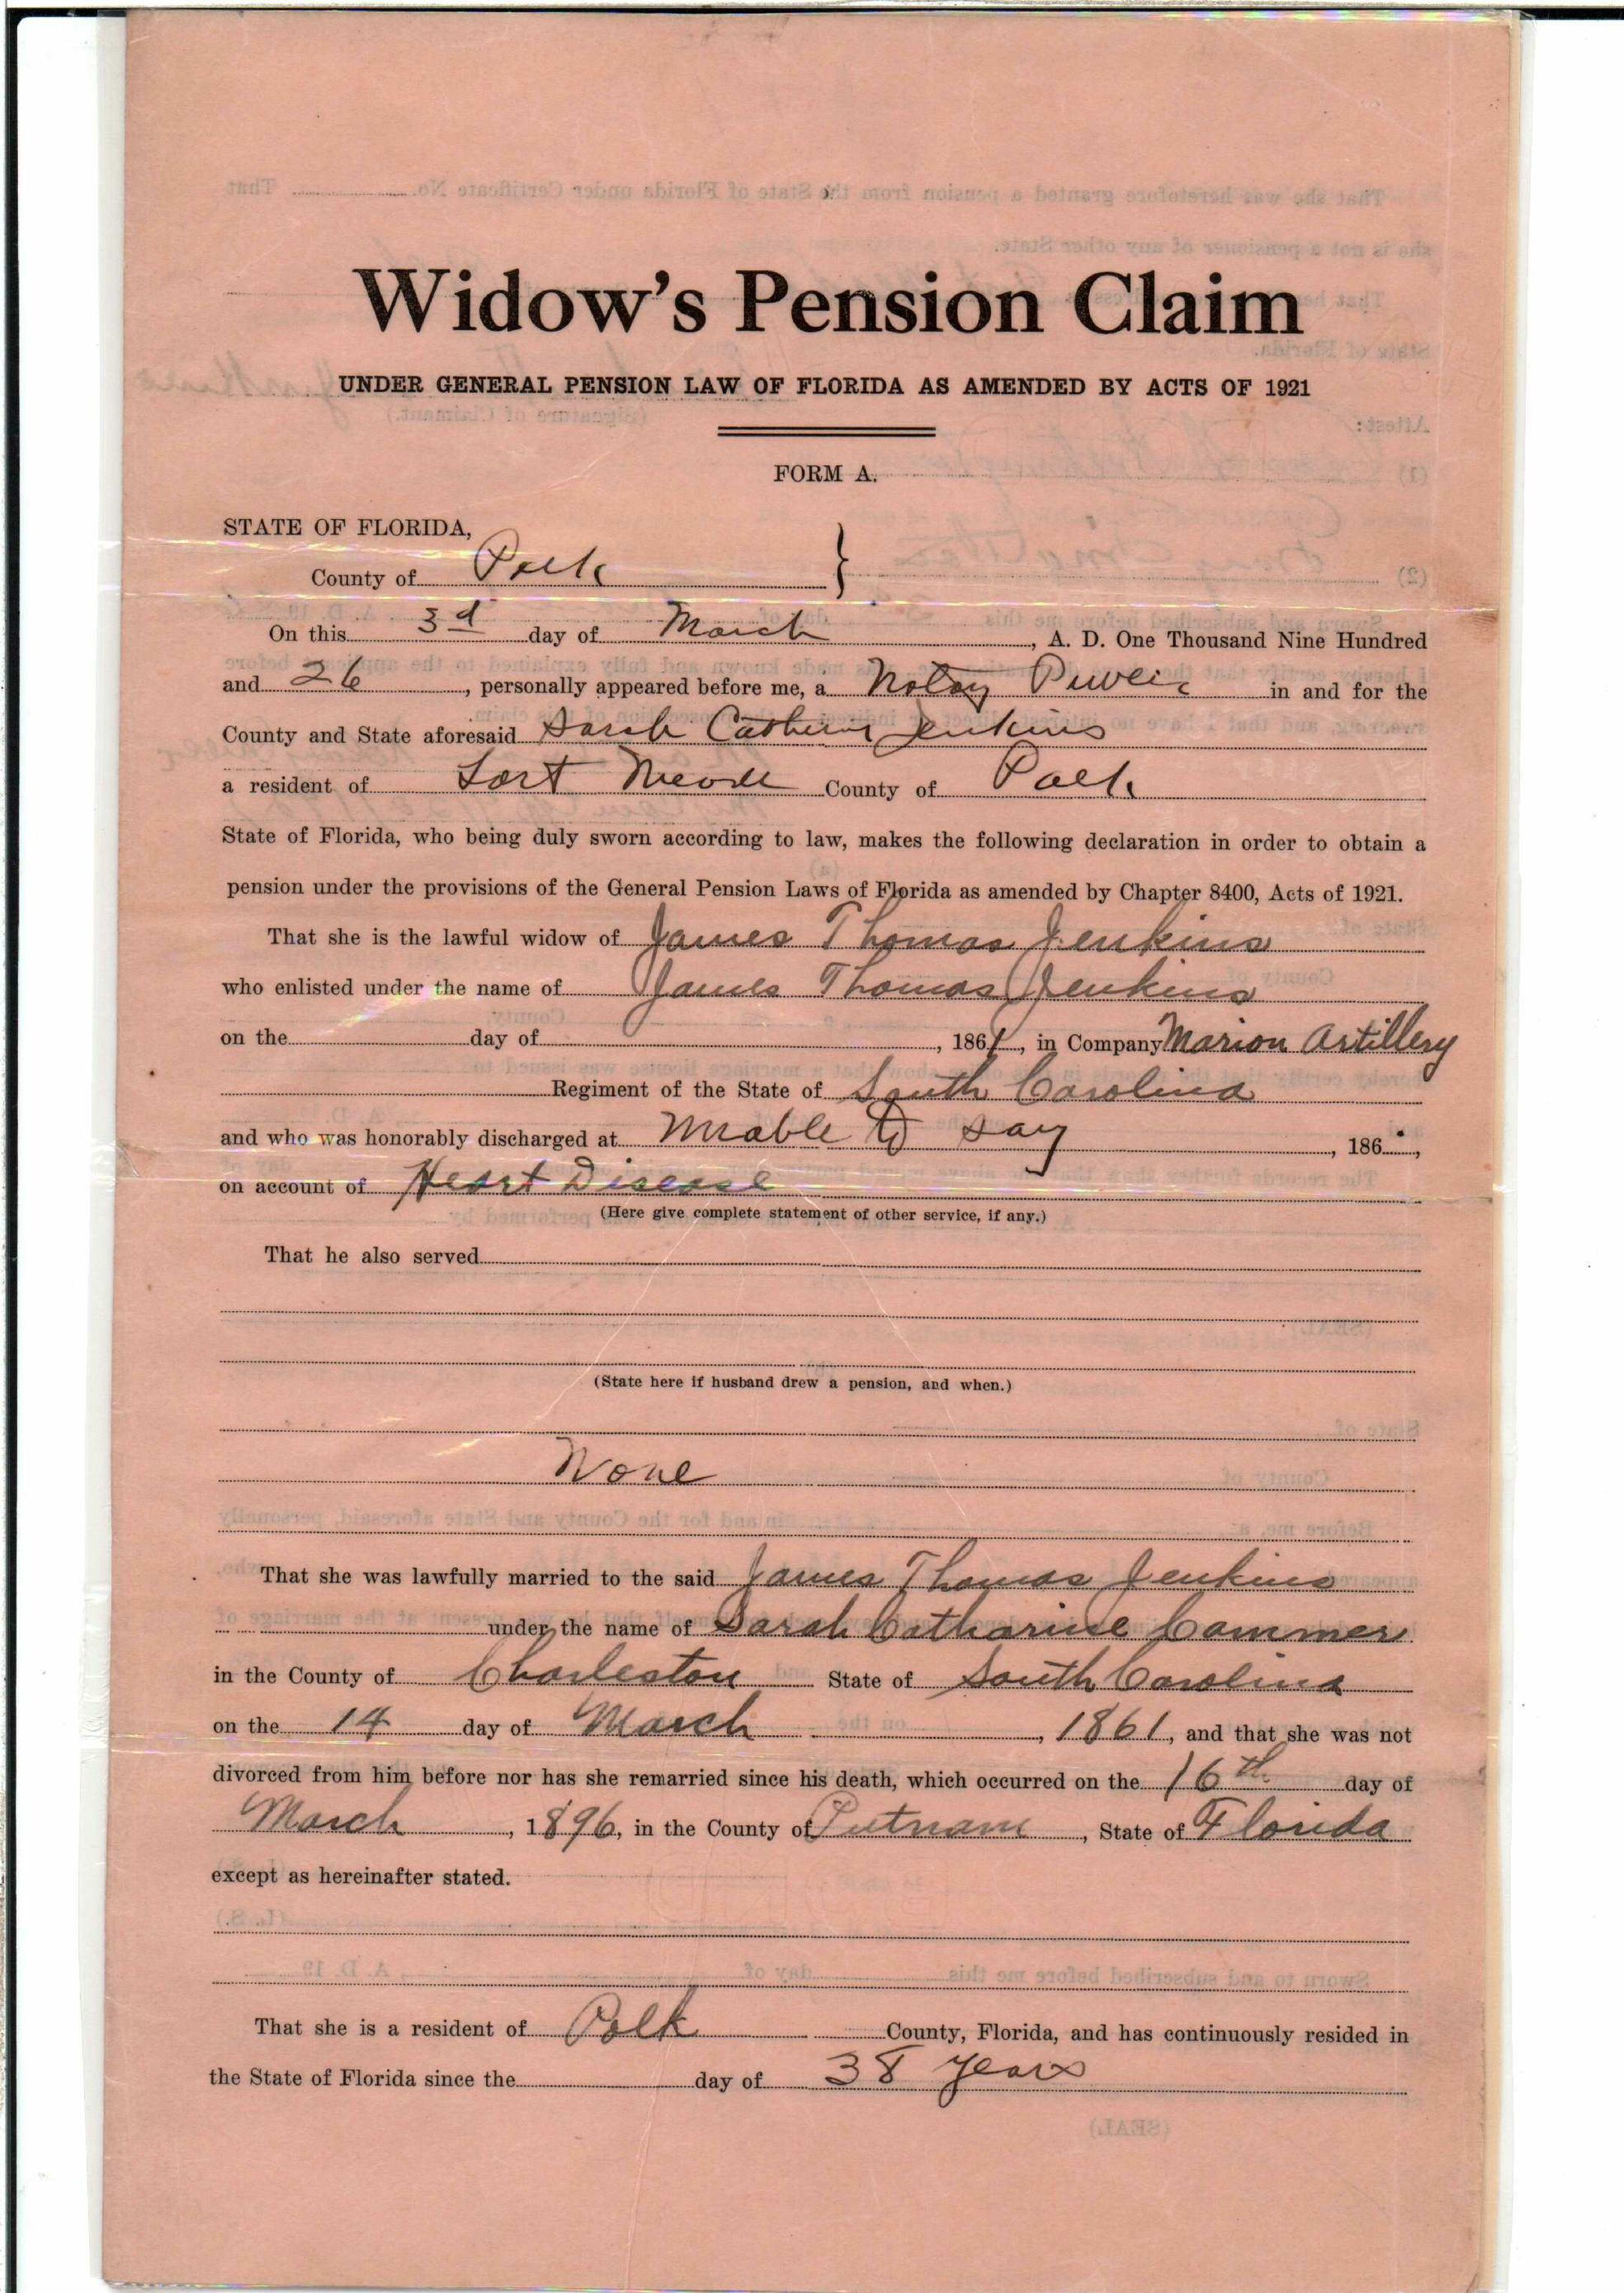 Widow's Pension Claim
UNDER GENERAL PENSION LAW OF FLORIDA AS AMENDED BY ACTS OF 1921
FORM A.
STATE OF FLORIDA,
County of Polk }
On this 3d day of March, A. D. One Thousand Nine Hundred
and 26, personally appeared before me, a Notary Public in and for the
County and State aforesaid Sarah Catherine Jenkins
a resident of Fort Meade County of Polk
State of Florida, who being duly sworn according to law, makes the following declaration in order to obtain a
pension under the provisions of the General Pension Laws of Florida as amended by Chapter 8400, Acts of 1921.
That she is the lawful widow of James Thomas Jenkins
who enlisted under the name of James Thomas Jenkins
on the day of , 1861, in Company Marion Artillery
Regiment of the State of South Carolina
and who was honorably discharged at Unable to say, 186 ,
on account of Heart Disease
(Here give complete statement of other service, if any.)
That he also served
(State here if husband drew a pension, and when.)
None
That she was lawfully married to the said James Thomas Jenkins
under the name of Sarah Catharine Cammer
in the County of Charleston State of South Carolina
on the 14 day of March, 1861, and that she was not
divorced from him before nor has she remarried since his death, which occurred on the 16th day of
March, 1896, in the County of Putnam, State of Florida
except as hereinafter stated.
That she is a resident of Polk County, Florida, and has continuously resided in
the State of Florida since the day of 38 years